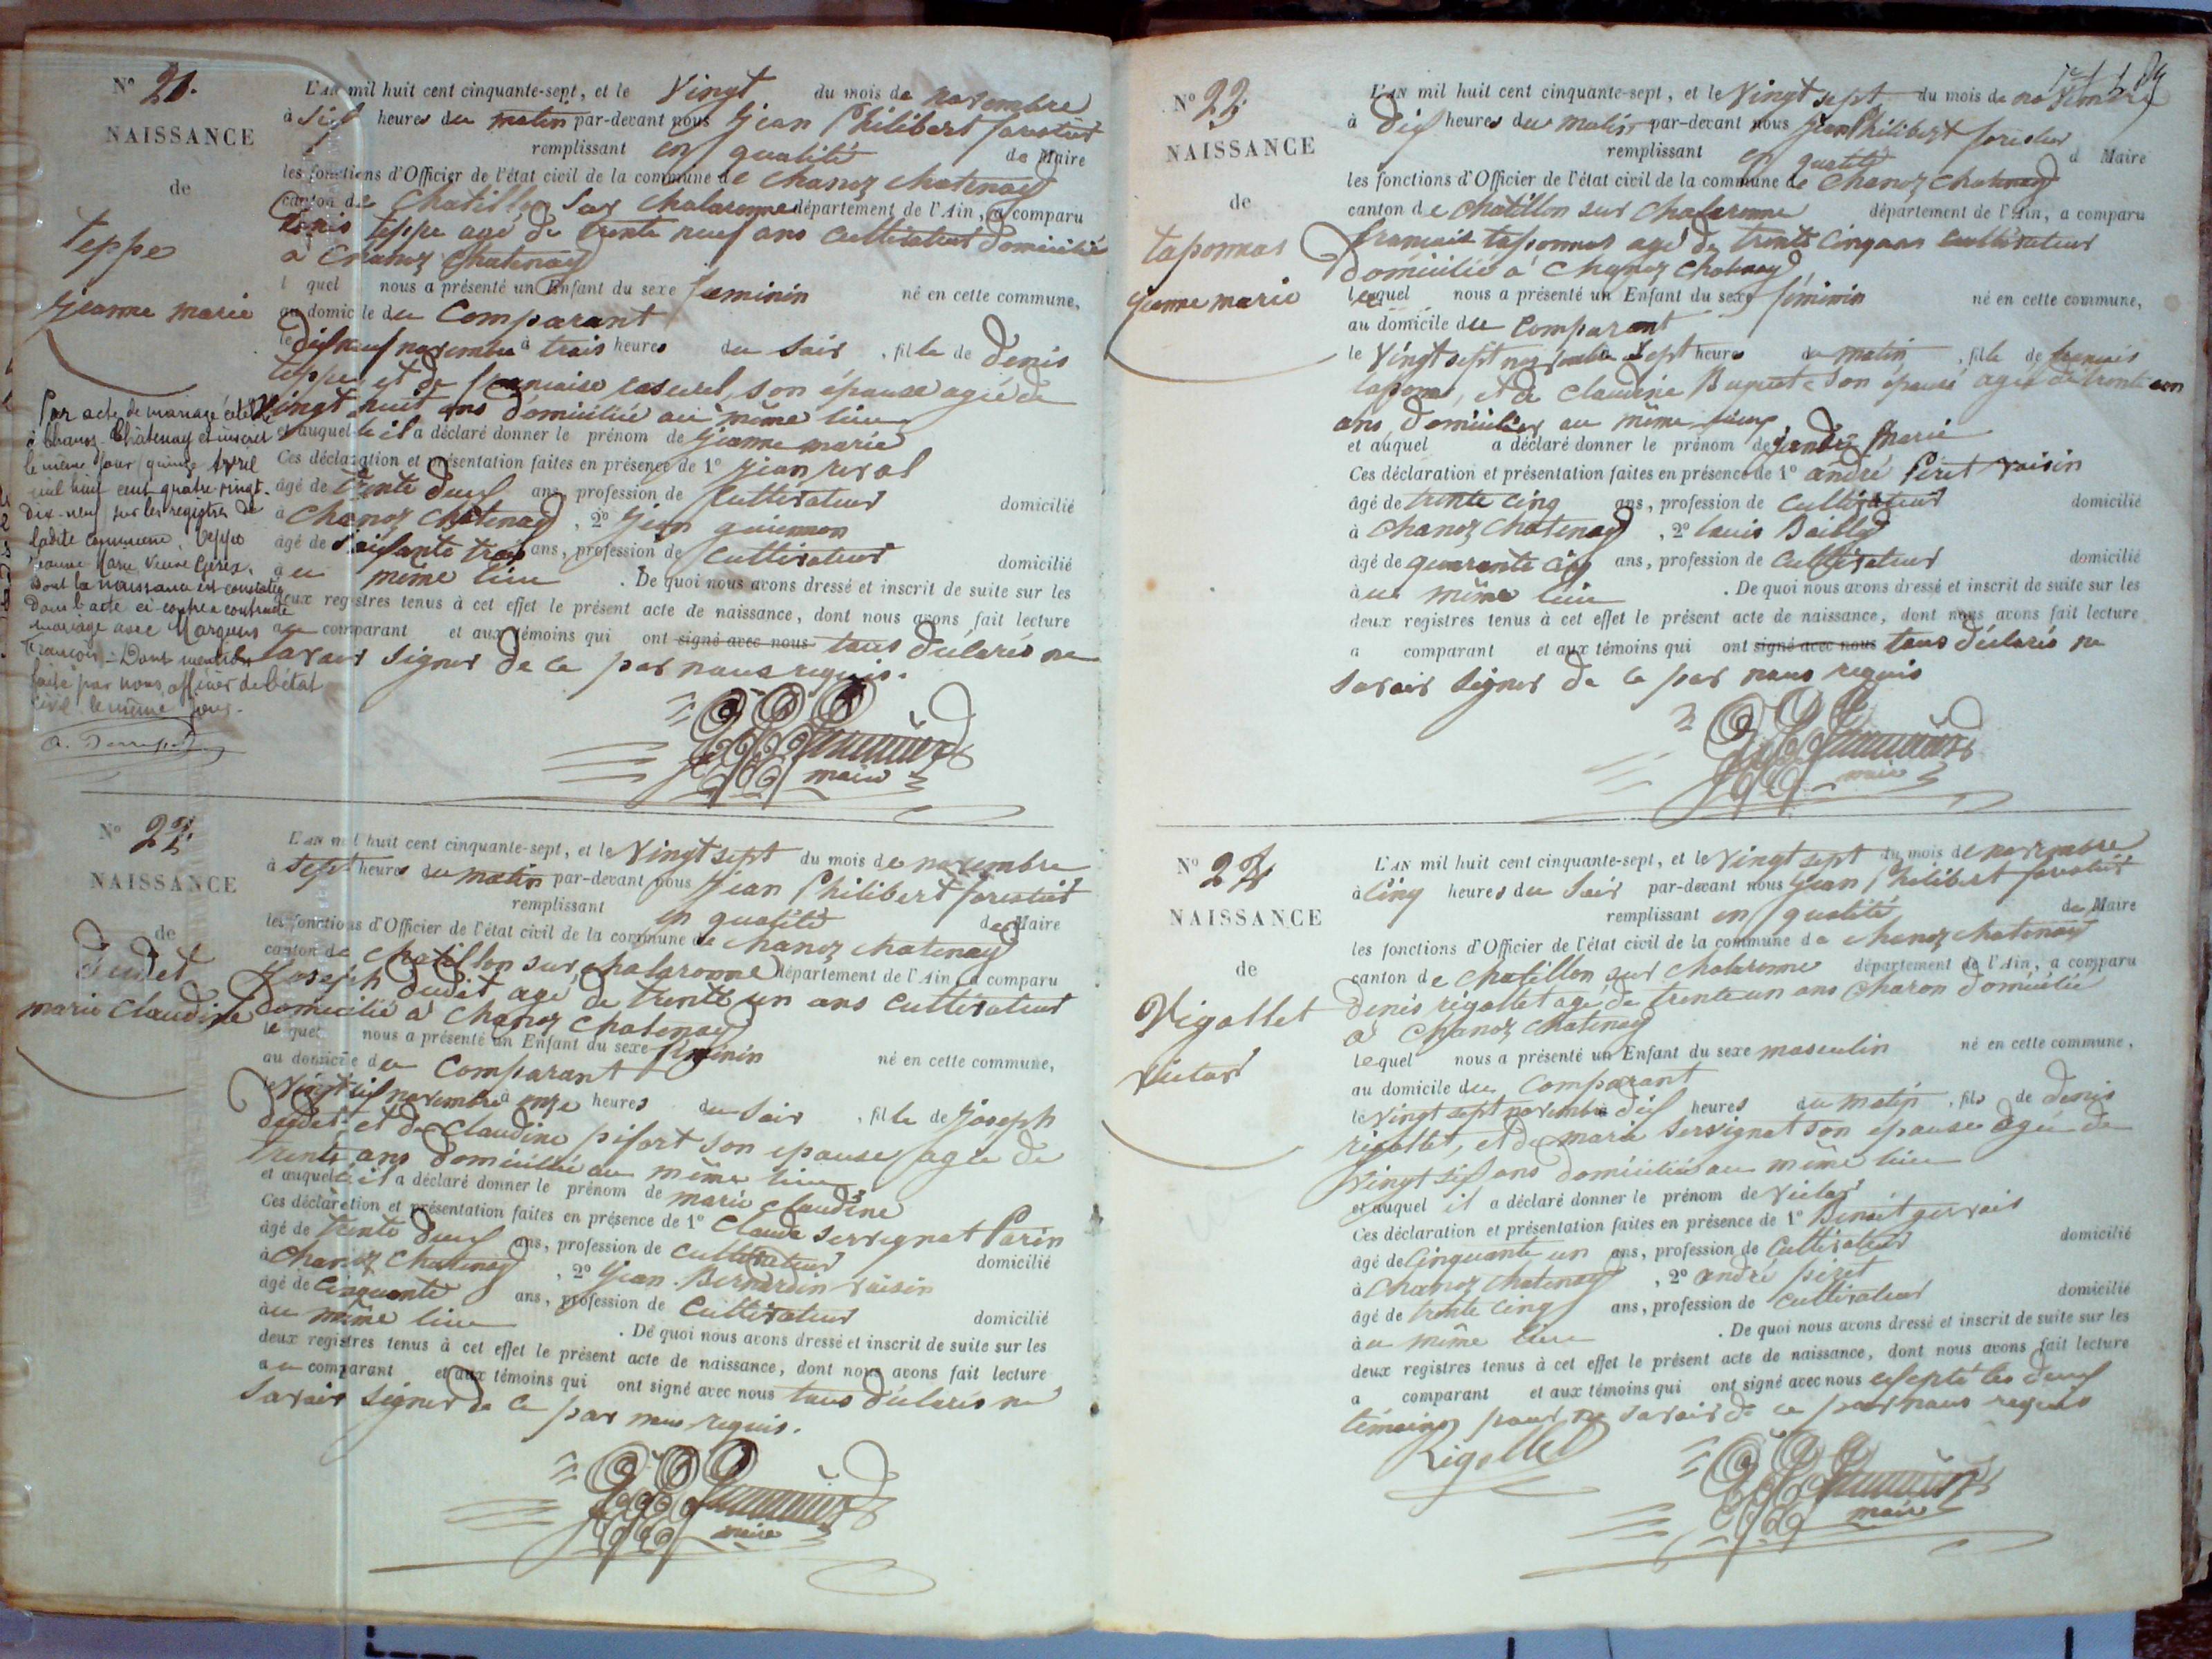 N° 21.
NAISSANCE
de
teppe
jeanne marie
L'AN mil huit cent cinquante-sept, et le Vingt du mois de novembre
à heures du matin par-devant nous jean Philibert forestier
remplissant en qualité de Maire
les fonctions d'Officier de l'état civil de la commune de Chanoz Chatenay
canton de Chatillon sur Chalaronne département de l'Ain, a comparu
Denis teppe agé de trente neuf ans cultivateur domicilié
à Chanoz Chatenay
l quel nous a présenté un Enfant du sexe feminin né en cette commune,
au domicile du Comparant
le dixneuf novembre à trois heures du soir, fille de Denis
teppe, et de francoise son épouse agée de
vingt huit ans domiciliée au même lieu
et auquel il a déclaré donner le prénom de jeanne marie
Ces déclaration et présentation faites en présence de 1° jean reval
âgé de trente deux ans, profession de Cultivateur domicilié
à Chanoz Chatenay, 2° jean
âgé de soixante trois ans, profession de Cultivateur domicilié
au même lieu. De quoi nous avons dressé et inscrit de suite sur les
deux registres tenus à cet effet le présent acte de naissance, dont nous avons fait lecture
au comparant et aux témoins qui ont signé avec nous tous déclarés ne
savoir signer de ce par nous requis.
maire
Par acte de mariage célébré
à Chanoz-Châtenay et inscrit
le même jour quinze Avril
mil huit cent quatre-vingt-
dix-neuf sur les registres de
ladite commune, Teppe
Jeanne Marie, Veuve
dont la naissance est constatée
dans l'acte ci-contre a contracté
mariage avec Marguin
François. - Dont mention
faite par nous, officier de l'état
civil le même jour.
N° 22.
NAISSANCE
de
Dudet
marie Claudine
L'AN mil huit cent cinquante-sept, et le Vingt sept du mois de novembre
à sept heures du matin par-devant nous jean Philibert forestier
remplissant en qualité de Maire
les fonctions d'Officier de l'état civil de la commune de Chanoz Chatenay
canton de Chatillon sur Chalaronne département de l'Ain, a comparu
Joseph dudet agé de trente un ans cultivateur
domicilié à Chanoz Chatenay
le quel nous a présenté un Enfant du sexe féminin né en cette commune,
au domicile du Comparant
le Vingt six novembre à onze heures du soir, fille de joseph
dudet et de Claudine pifort son epouse agée de
trente ans domiciliée au même lieu
et auquel il a déclaré donner le prénom de marie Claudine
Ces déclaration et présentation faites en présence de 1° Claude servignat
âgé de trente deux ans, profession de Cultivateur domicilié
à Chanoz Chatenay, 2° jean Bernardin voisin
âgé de Cinquante ans, profession de Cultivateur domicilié
au même lieu. De quoi nous avons dressé et inscrit de suite sur les
deux registres tenus à cet effet le présent acte de naissance, dont nous avons fait lecture
au comparant et aux témoins qui ont signé avec nous tous déclarés ne
savoir signer de ce par nous requis.
maire
N° 23.
NAISSANCE
de
taponnas
jeanne marie
L'AN mil huit cent cinquante-sept, et le Vingt sept du mois de novembre
à dix heures du matin par-devant nous jean Philibert forestier
remplissant en qualité d Maire
les fonctions d'Officier de l'état civil de la commune de Chanoz Chatenay
canton de Chatillon sur Chalaronne département de l'Ain, a comparu
francois taponnas agé de trente cinq ans cultivateur
domicilié à Chanoz Chatenay
lequel nous a présenté un Enfant du sexe féminin né en cette commune,
au domicile du Comparant
le Vingt sept novembre à sept heures du matin, fille de francois
taponas, et de Claudine son épouse agée de trente
ans, domiciliés au même lieu
et auquel a déclaré donner le prénom de Marie
Ces déclaration et présentation faites en présence de 1° andré Peret voisin
âgé de trente cinq ans, profession de Cultivateur domicilié
à Chanoz Chatenay, 2° louis Bailly
âgé de quarante cinq ans, profession de Cultivateur domicilié
au même lieu. De quoi nous avons dressé et inscrit de suite sur les
deux registres tenus à cet effet le présent acte de naissance, dont nous avons fait lecture
a comparant et aux témoins qui ont signé avec nous tous déclarés ne
savoir signer de ce par nous requis
maire
N° 24
NAISSANCE
de
Rigollet
victor
L'AN mil huit cent cinquante-sept, et le Vingt sept du mois de novembre
à Cinq heures du Soir par-devant nous jean Philibert forestier
remplissant en qualité de Maire
les fonctions d'Officier de l'état civil de la commune de Chanoz Chatenay
canton de Chatillon sur Chalaronne département de l'Ain, a comparu
Denis rigollet agé de trente un ans Charon domicilié
à Chanoz Chatenay
lequel nous a présenté un Enfant du sexe masculin né en cette commune,
au domicile du Comparant
le Vingt sept novembre dix heures du matin, fils de denis
rigollet, et de marie servignat son epouse agée de
vingt six ans domiciliée au même lieu
et auquel il a déclaré donner le prénom de victor
Ces déclaration et présentation faites en présence de 1° Benoit gervais
âgé de Cinquante un ans, profession de Cultivateur domicilié
à Chanoz Chatenay, 2° andré péret
âgé de trente cinq ans, profession de Cultivateur domicilié
au même lieu. De quoi nous avons dressé et inscrit de suite sur les
deux registres tenus à cet effet le présent acte de naissance, dont nous avons fait lecture
a comparant et aux témoins qui ont signé avec nous excepté les deux
témoins pour ne savoir de ce par nous requis
Rigollet
maire